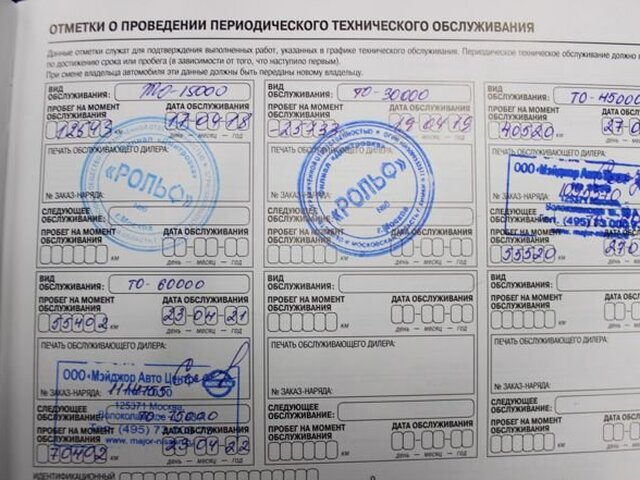 ОТМЕТКИ О ПРОВЕДЕНИИ ПЕРИОДИЧЕСКОГО ТЕХНИЧЕСКОГО ОБСЛУЖИВАНИЯ
Данные отметки служат для подтверждения выполненных работ, указанных в графике технического обслуживания. Периодическое техническое обслуживание должно
по достижению срока или пробега (в зависимости от того, что наступило первым).
При смене владельца автомобиля эти данные должны быть переданы новому владельцу.
ВИД ОБСЛУЖИВАНИЯ: ТО-15000
ПРОБЕГ НА МОМЕНТ ОБСЛУЖИВАНИЯ
ДАТА ОБСЛУЖИВАНИЯ
12543 км
17 04 18
день — месяц — год
ПЕЧАТЬ ОБСЛУЖИВАЮЩЕГО ДИЛЕРА:
«РОЛЬФ»
г.Москва
№ ЗАКАЗ-НАРЯДА:
СЛЕДУЮЩЕЕ ОБСЛУЖИВАНИЕ:
ПРОБЕГ НА МОМЕНТ ОБСЛУЖИВАНИЯ
ДАТА ОБСЛУЖИВАНИЯ
км
день — месяц — год
ВИД ОБСЛУЖИВАНИЯ: ТО-30000
ПРОБЕГ НА МОМЕНТ ОБСЛУЖИВАНИЯ
ДАТА ОБСЛУЖИВАНИЯ
25733 км
19 04 19
день — месяц — год
ПЕЧАТЬ ОБСЛУЖИВАЮЩЕГО ДИЛЕРА:
«РОЛЬФ»
г.Москва
№ ЗАКАЗ-НАРЯДА:
СЛЕДУЮЩЕЕ ОБСЛУЖИВАНИЕ:
ПРОБЕГ НА МОМЕНТ ОБСЛУЖИВАНИЯ
ДАТА ОБСЛУЖИВАНИЯ
км
день — месяц — год
ВИД ОБСЛУЖИВАНИЯ: ТО-45000
ПРОБЕГ НА МОМЕНТ ОБСЛУЖИВАНИЯ
ДАТА ОБСЛУЖИ
40520 км
27 0
день —
ПЕЧАТЬ ОБСЛУЖИВАЮЩЕГО ДИЛЕРА:
ООО «Мэйджор Авто
№ ЗАКАЗ-НАРЯДА:
(495)
СЛЕДУЮЩЕЕ ОБСЛУЖИВАНИЕ:
ПРОБЕГ НА МОМЕНТ ОБСЛУЖИВАНИЯ
55520 км
270
день —
ВИД ОБСЛУЖИВАНИЯ: ТО-60000
ПРОБЕГ НА МОМЕНТ ОБСЛУЖИВАНИЯ
ДАТА ОБСЛУЖИВАНИЯ
55402 км
23 04 21
день — месяц — год
ПЕЧАТЬ ОБСЛУЖИВАЮЩЕГО ДИЛЕРА:
ООО «Мэйджор Авто Центр»
NISSAN
№ ЗАКАЗ-НАРЯДА:
125371 Москва
СЛЕДУЮЩЕЕ ОБСЛУЖИВАНИЕ: ТО-15000
(495)
ПРОБЕГ НА МОМЕНТ ОБСЛУЖИВАНИЯ
www.major-nissan.ru
70402 км
23 04 22
день — месяц — год
ВИД ОБСЛУЖИВАНИЯ:
ПРОБЕГ НА МОМЕНТ ОБСЛУЖИВАНИЯ
ДАТА ОБСЛУЖИВАНИЯ
км
день — месяц — год
ПЕЧАТЬ ОБСЛУЖИВАЮЩЕГО ДИЛЕРА:
№ ЗАКАЗ-НАРЯДА:
СЛЕДУЮЩЕЕ ОБСЛУЖИВАНИЕ:
ПРОБЕГ НА МОМЕНТ ОБСЛУЖИВАНИЯ
ДАТА ОБСЛУЖИВАНИЯ
км
день — месяц — год
ВИД ОБСЛУЖИВАНИЯ:
ПРОБЕГ НА МОМЕНТ ОБСЛУЖИВАНИЯ
ДАТА ОБСЛУЖ
км
день —
ПЕЧАТЬ ОБСЛУЖИВАЮЩЕГО ДИЛЕРА:
№ ЗАКАЗ-НАРЯДА:
СЛЕДУЮЩЕЕ ОБСЛУЖИВАНИЕ:
ПРОБЕГ НА МОМЕНТ ОБСЛУЖИВАНИЯ
ДАТА ОБСЛУ
км
день —
ИДЕНТИФИКАЦИОННЫЙ